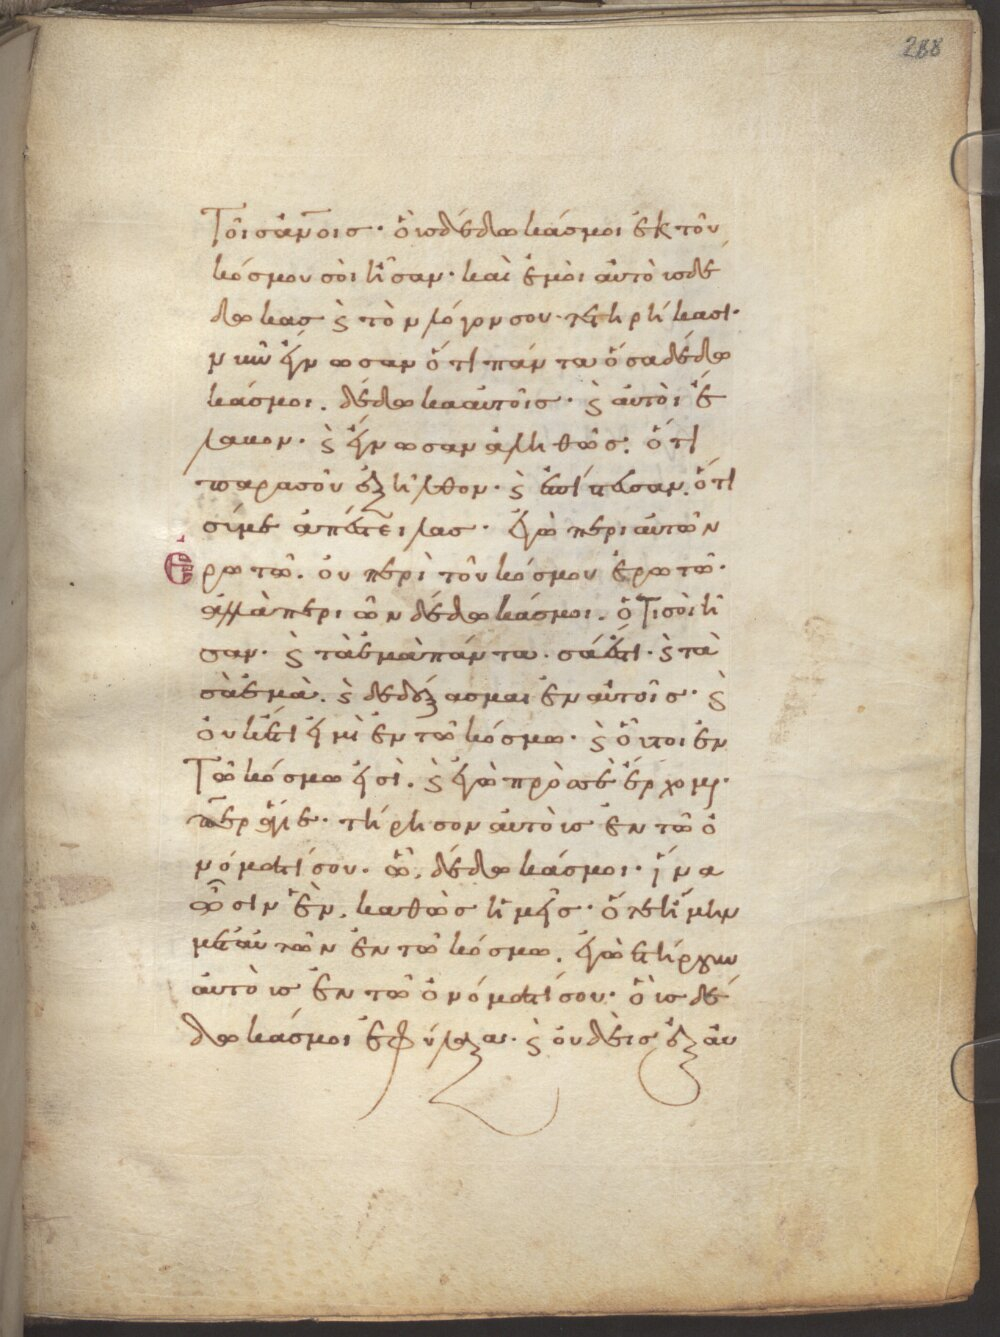 288
Τοῖς ἀν̅οις· ὁὶς δέδωκάσμοι ἐκ τοῦ
κόσμου σὸι ἦσαν· καὶ ἐμὸι ἀυτὸις δέ
δωκας ϛ τὸν λόγον σου τετηρήκασι·
νῦν ἔγνωσαν ὅτι πάντα ὅσα δέδω
κάσμοι. δέδωκα αυτοῖς· ϛ ἀυτὸι ἔ
λαβον· ϛ ἔγνωσαν ἀληθῶς· ὅτι
παρασοῦ ἐξῆλθον· ϛ ἐπίστευσαν. ὅτι
σύμε ἀπέστειλας· ἐγὼ περι αυτῶν
ἐρωτῶ. ὀυ περὶ τοῦ κόσμου ἐρωτῶ·
ἀλλὰ περι ὧν δέδωκάσμοι. ὅτι σὸι ἦ
σαν. ϛ τὰ ἐμὰ πάντα σά ἐστι· ϛ τὰ
σὰ ἐμὰ. ϛ δεδόξασμαι ἐν ἀυτοῖς· ϛ
ὀυκέτι ἐιμὶ ἐν τῶ κόσμω· ϛ οὗτοι ἐν
Τῶ κόσμω ἐισὶ. ϛ ἐγὼ πρὸς σὲ ἔρχομαι·
π̅ερ ἅγιε· τήρησον ἀυτὸις ἐν τῶ ὀ
νόματί σου. ὧ, δέδωκάσμοι· ἵνα
ὦσιν ἓν, καθὼς ἡμεῖς· ὅτε ἤμην
μετ αυτῶν ἐν τῶ κόσμω. ἐγὼ ἐτήρουν
ἀυτὸις ἐν τῶ ὀνόματί σου· ὁὶς δέ
δωκάσμοι ἐφύλαξα· ϛ ὀυδεὶς ἐξ ἀυ